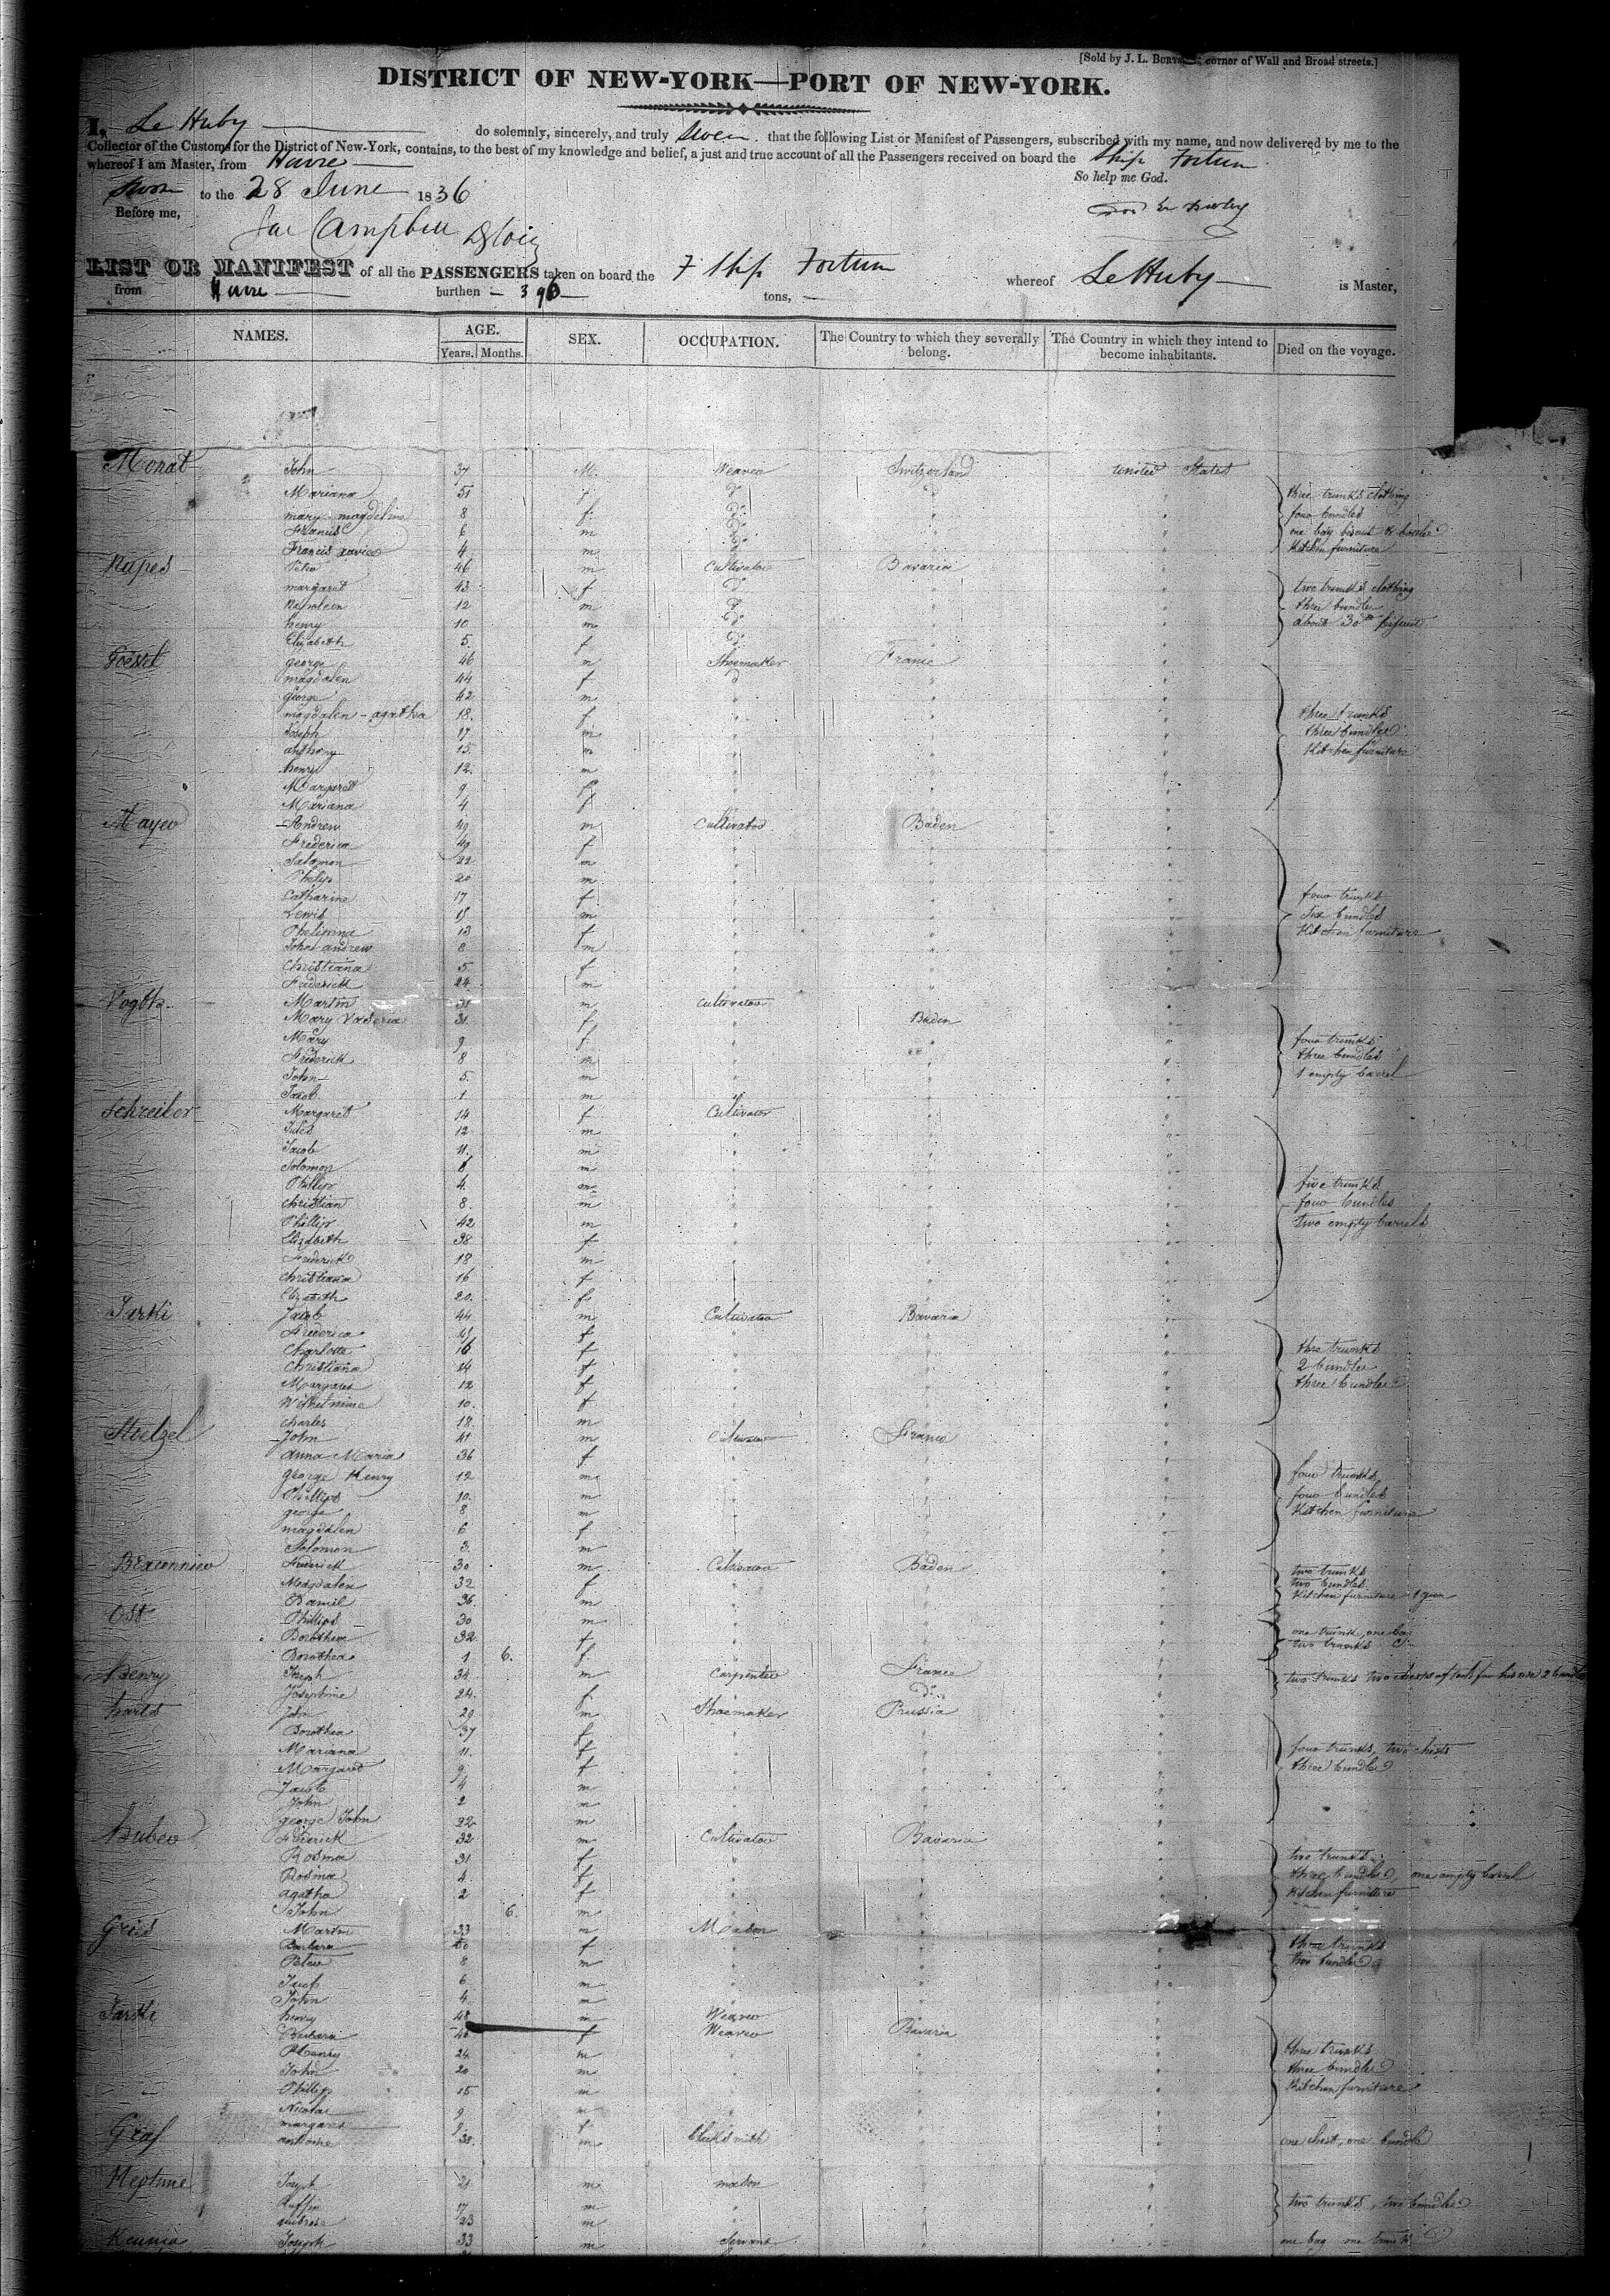 [Sold by J. L. corner of Wall and Broad streets.]
DISTRICT OF NEW-YORK—PORT OF NEW-YORK.
I, Le Huby do solemnly, sincerely, and truly Swear that the following List or Manifest of Passengers, subscribed with my name, and now delivered by me to the
Collector of the Customs for the District of New-York, contains, to the best of my knowledge and belief, a just and true account of all the Passengers received on board the Ship Fortun
whereof I am Master, from Havre
So help me God.
Sworn to the 28 June 1836
Before me,
Campbell
LIST OR MANIFEST of all the PASSENGERS taken on board the Ship Fortun whereof Le Huby is Master,
from Havre burthen 396 tons,
NAMES. AGE. SEX. OCCUPATION. The Country to which they severally belong. The Country in which they intend to become inhabitants. Died on the voyage.
Years. Months.
Monat John 37 M. Weaver Switzerland United States
Mariana 51 f three trunks clothing
mary magdeline 8 f four bundles
Francis 6 m
Francis xavier 4 m Kitchen furniture
Rupes Peter 46 m Cultivator Bavaria
margaret 43 f two trunks clothing
Napoleon 12 m three bundles
henry 10 m about 30
Elizabeth 5 f
george 46 m Shoemaker France
magdalen 44 f
george 42 m
magdalen - agatha 18 f three trunks
Joseph 17 m three bundles
anthony 15 m Kitchen furniture
henry 12 m
Margaret 9 f
Mariana 4 f
Mayer Andrew 49 m Cultivator Baden
Frederica 49 f
Salomon 22 m
Philip 20 m
Catharine 17 f four trunks
Lewis 15 m Six bundles
13 f Kitchen furniture
John andrew 8 m
Christiana 5 f
Frederick 24 m
Vogth Martin 31 m Cultivator
Mary 31 f Baden
Mary 9 f four trunks
Frederick 8 m three bundles
John 5 m 1 empty barrel
Jacob 1 m
Schreiber Margaret 14 f Cultivator
Jules 12 m
Jacob 11 m
Solomon m
Phillip 4 m five trunks
Christian 8 m four bundles
Phillip 42 m two empty barrels
Elizabeth 38 f
Frederick 18 m
Christiana 16 f
Elizabeth 20 f
Jacob 44 m Cultivator Bavaria
Frederica f
Charlotte 16 f three trunks
Christiana 24 f 2 bundles
Margaret 12 f three bundles
Wilhelmine 10 f
Charles 18 m
Stelzel John 41 m Cultivator France
Anna Maria 36 f
George Henry 12 m four trunks
Phillip 10 m four bundles
george 8 m Kitchen furniture
magdalen 6 f
Solomon 3 m
Braconnier Frederick 30 m Cultivator Baden two trunks
Magdalen 32 f two bundles
Daniel 36 m Kitchen furniture 1 gun
Ost Phillip 30 m
Dorothea 32 f one trunk, one bag
Dorothea 1 6 f two trunks
Henry Joseph 34 m Carpenter France two trunks two chests of tools for his use 2 bundles
Josephine 24 f
John 29 m Shoemaker Prussia
Dorothea 37 f
Mariana 11 f four trunks, two chests
Margaret 9 f three bundles
Jacob 4 m
John 2 m
George John 22 m
Huber Frederick 32 m Cultivator Bavaria
Rosina 31 f two trunks
Rosina 4 f three bundles, one empty barrel
agatha 2 f Kitchen furniture
John 6 m
Gries Martin 33 m Mason
Barbara f three trunks
Peter 8 m two bundles
6 m
John 4 m
henry 48 m Weaver
Barbara f Weaver Bavaria
Henry 24 m three trunks
John 20 m three bundles
Phillip 15 m Kitchen furniture
Nicolas 9 m
margaret f
Graf antoine 38 m blacksmith one chest, one bundle
Neptune Joseph 21 m mason
17 m two trunks, two bundles
ambrose 23 m
Joseph 33 m Servant one bag one trunk